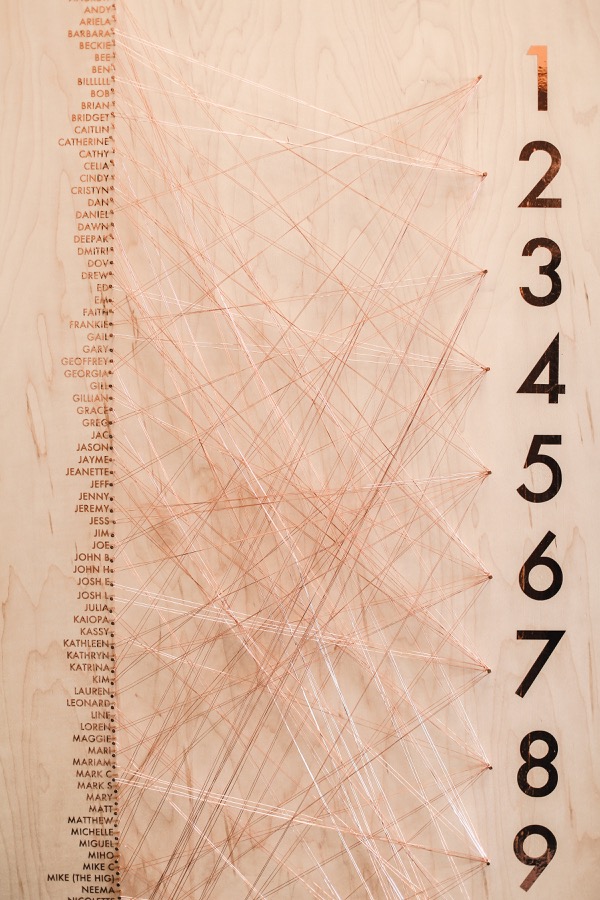 ANDY
ARIELA
BARBARA
BECKIE
BEE
BEN
BILLLLLL
BOB
BRIAN
BRIDGET
CAITLIN
CATHERINE
CATHY
CELIA
CINDY
CRISTYN
DAN
DANIEL
DAWN
DEEPAK
DMITRI
DOV
DREW
ED
EM
FAITH
FRANKIE
GAIL
GARY
GEOFFREY
GEORGIA
GILL
GILLIAN
GRACE
GREG
JAC
JASON
JAYME
JEANETTE
JEFF
JENNY
JEREMY
JESS
JIM
JOE
JOHN B
JOHN H
JOSH E
JOSH L
JULIA
KAIOPA
KASSY
KATHLEEN
KATHRYN
KATRINA
KIM
LAUREN
LEONARD
LINE
LOREN
MAGGIE
MARI
MARIAM
MARK C
MARK S
MARY
MATT
MATTHEW
MICHELLE
MIGUEL
MIHO
MIKE C
MIKE (THE HIG)
NEEMA
1
2
3
4
5
6
7
8
9